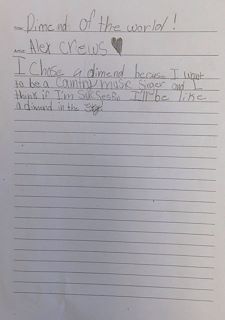 Dimend of the world!
Alex Crews
I Chose a dimend because I want
to be a Country music singer and I
think if I'm sucsesful I'll be like
a dimend in the